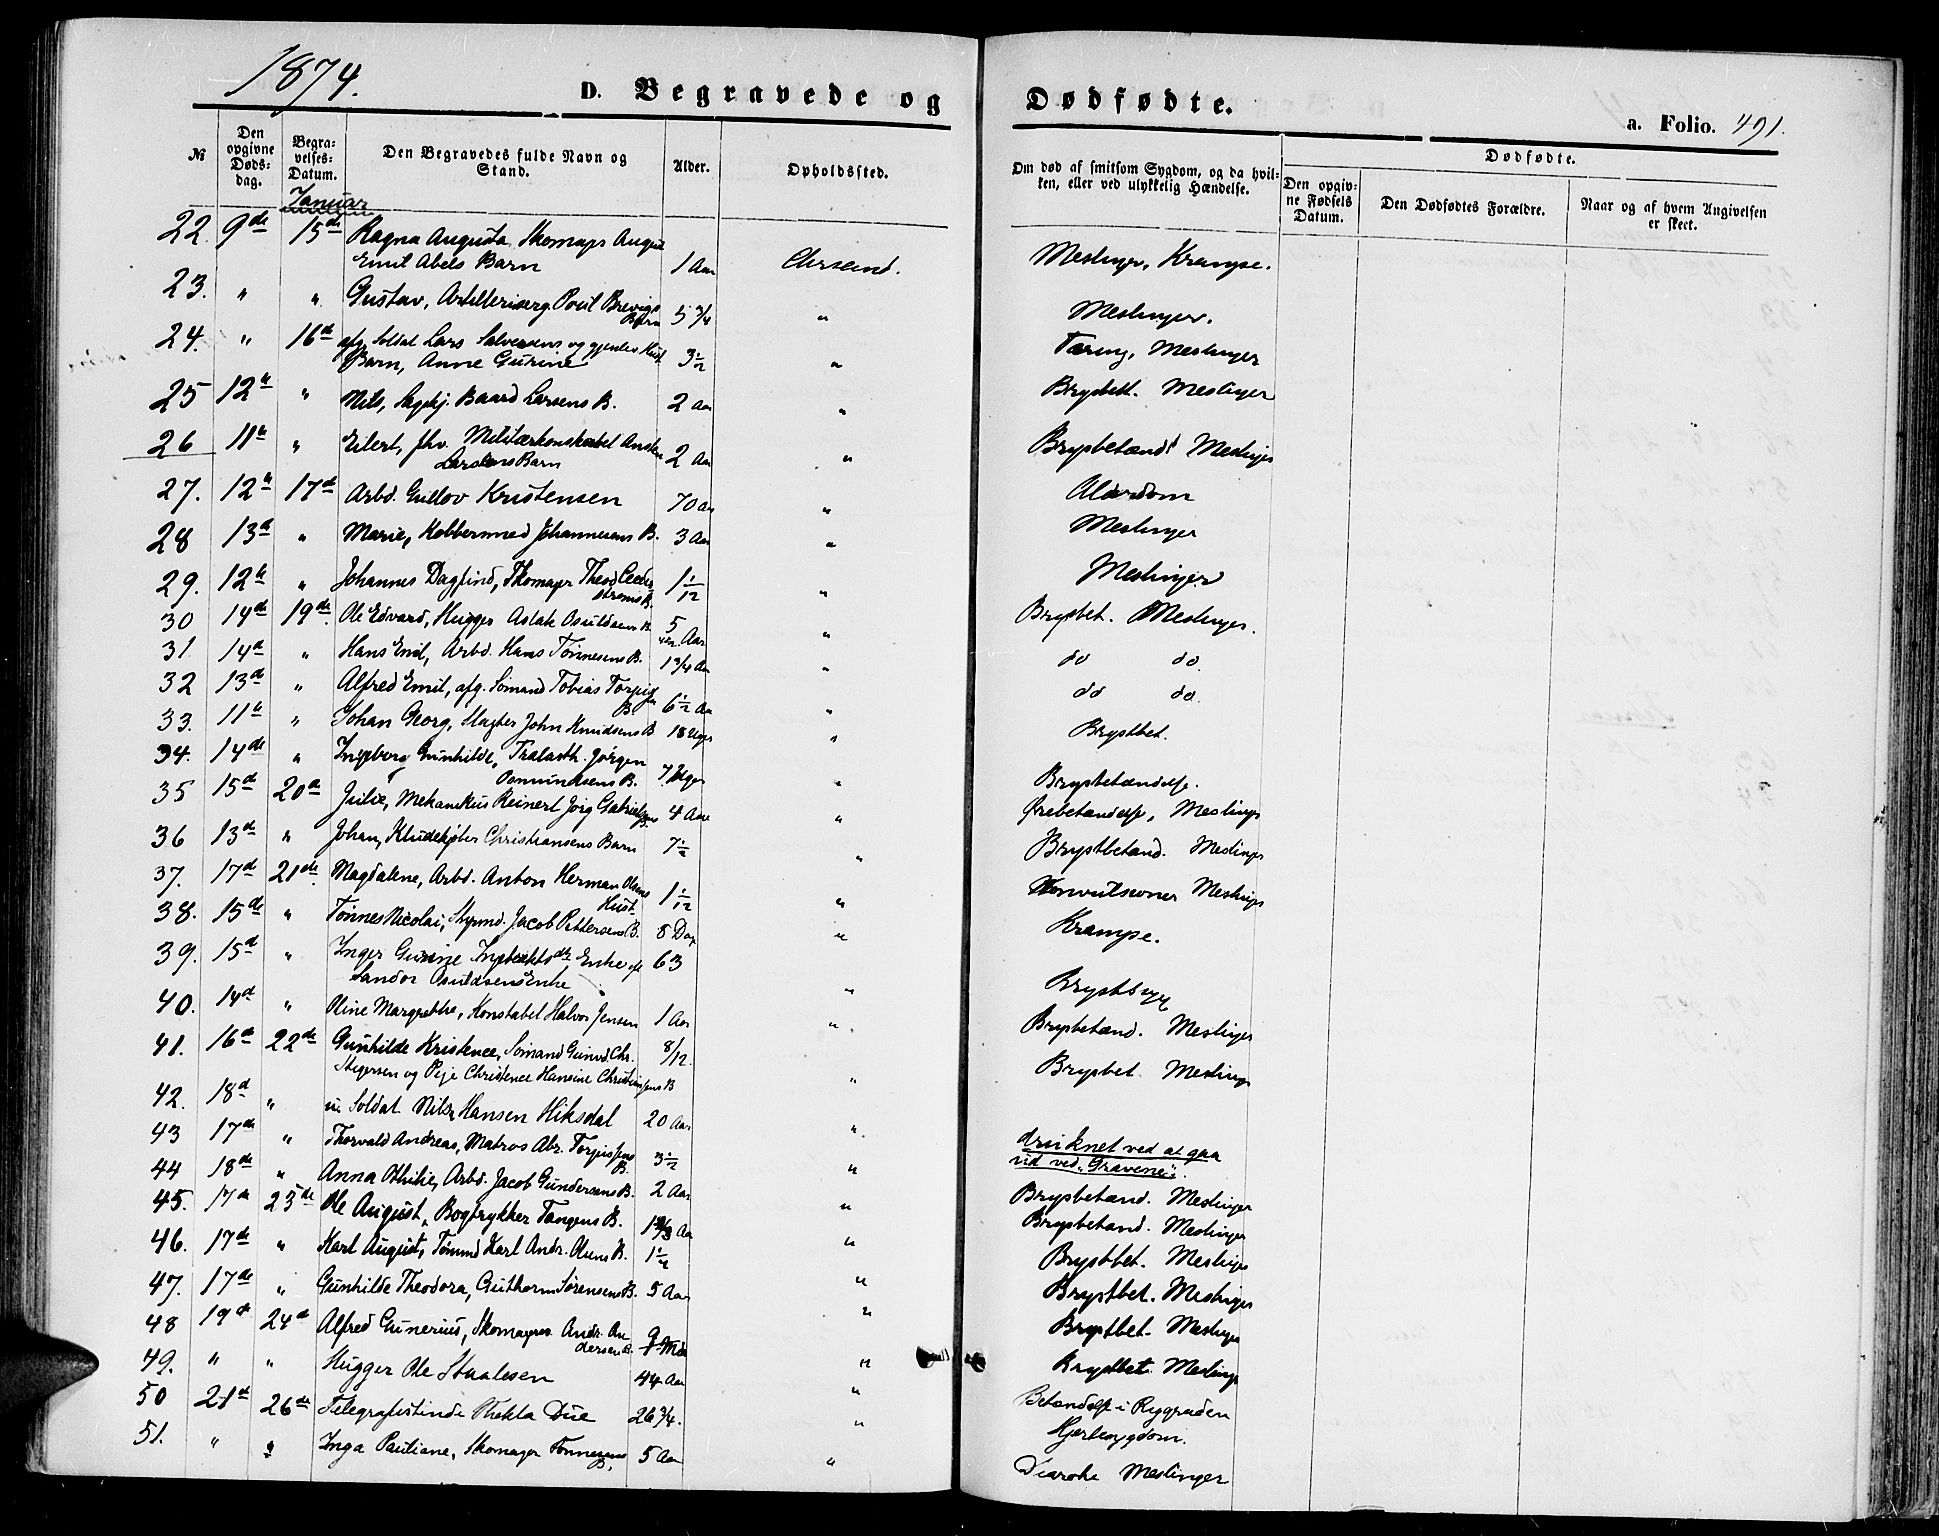 1874.
D. Begravede og Dødfødte.
a. Folio. 491.
№ Den opgivne Døds-dag. Begra-velses-Datum. Den Begravedes fulde Navn og Stand. Alder. Opholdssted. Om død af smitsom Sygdom, og da hvil-ken, eller ved ulykkelig Hændelse. Dødfødte.
Den opgiv-ne Fødsels Datum. Den Dødfødtes Forældre. Naar og af hvem Angivelsen er skeet.
Januar
22. 9de 15de Ragna Augusta Skomagr August
Emil Abels Barn 1 Aar Chrsand. Meslinger, Krampe.
23. " " Gustav, Artilleriserg. Poul Brevigs
Barn 5 3/4 " Meslinger.
24. " 16de afg. Soldat Lars Salvesens og gjenlev. Hust.
Barn, Anne Gurine 3 1/2 " Tæring, Meslinger
25 12te " Nils, Baard Larsens B. 2 Aar " Brystbet. Meslinger
26 11te " Eilert, fhv. Militærkonstabel
Larsens Barn 2 Aar " Brystbetænd. Meslinger
27. 12te 17de Arbd. Gullov Kristensen 70 Aar " Alderdom
28 13de " Marie, Kobbersmed Johannesens B. 3 Aar " Meslinger
29. 12te " Johannes Dagfind, Skomager Theod. Ceder
strøms B. 1 1/12 " Meslinger
30 14de 19de Ole Edvard, Hugger Aslak Osuldsens B. 5 Aar " Brystbet. Meslinger.
31 14de " Hans Emil, Arbd. Hans Tønnesens B. 1 3/4 Aar " do do.
32 13de " Alfred Emil, afg. Sømand Tobias
B. 6 1/2 Aar " do do.
33. 11te " Johan Georg, Slagter John Knudsens B 18 Uger " Brystbet.
34. 14de " Ingeborg Gunhilde, Jørgen
Osmundsens B. 7 Uger " Brystbetændelse.
35 15de 20de Julie, Mekanikus Reinert Jørg Gabrielsens
B. 4 Aar " Ørebetændelse, Meslinger
36 13de " Johan, Kludekjøber Christiansens Barn 7 1/2 " Brystbetænd. Meslinger
37. 17de 21de. Magdalene, Arbd. Anton Herman Olsens
Hust. 1 1/12 " Konvulsioner Meslinger
38. 15de " Tønnes Nicolai, Styrmd. Jacob Pettersens B. 8 Dage " Krampe.
39. 15de " Inger Gurine Enke
Sandor Osuldsens Enke 63 " Brystsyge
40. 14de " Oline Margrethe, Konstabel Halvor Jensen 1 Aar " Brystbetænd. Meslinger
41. 16de 22de Gunhilde Kristence, Sømand Chr.
og Pige Christence Hansine Christiansens B 8/12. " Brystbet. Meslinger
42. 18de " Soldat Nils Hansen Hiksdal 20 Aar " druknet ved at gaa
ud ved "Gravene".
43 17de " Thorvald Andreas, Matros Abr. Torjussens
B. 3 1/2 " Brystbetænd. Meslinger
44 18de " Anna Othilie, Arbd. Jacob Gundersens B. 2 Aar " Brystbetænd. Meslinger
45. 17de 23de Ole August, Bogtrykker Tangens B. 1 Aar " Brystbet. Meslinger
46. 17de " Karl August, Tømmd Karl Andr. Olsens B. 1 1/2 " Brystbet. Meslinger
47. 17de " Gunhilde Theodora, Guthorm Sørensens B. 5 Aar " Brystbet. Meslinger
48 19de 24de Alfred Gunerius, Skomager Andr. An
dersens B. 9 " Brystbet. Meslinger
49. " " Hugger Ole Staalesen 44 Aar " Betændelse i Rygraden
50 21de 26de Telegrafistinde Thekla Due 26 3/4. " Hjertesygdom.
51. " " Inga Pauliane, Skomager Tønnesens
B. 5 Aar " Diarohe Meslinger